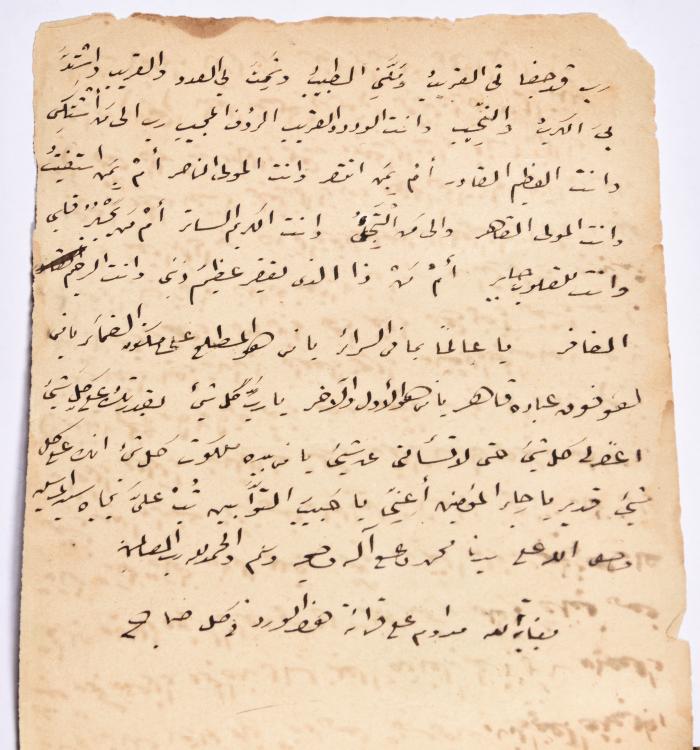 رب قد جفاني القريبُ ومَلَّني الطبيبُ وشَمِتَ بي العدو والقريب واشتدَّ
بيَ الكربُ والنحيب وانت الودود القريب الرؤف المجيب رب الى مَن أشتكي
وانت العظيم القادر أم بمن انتصر وانت المولى الناصر أمْ بِمَن استغيثُ
وانت المولى القاهر والى من ألتجئُ وانت الكريم الساتر أمْ مَن يجبُرُ قلبي
وانت للقلوب جابر أمْ مَنْ ذا الذي يغفر عظيمَ ذنبي وانت الرحيم
الغافر يا عالماً بما في السرائر يا من هو المطلع على مكنون الضمائر يا من
هو فوق عباده قاهر يا من هو الأول والآخر يا ربَّ كُلِّ شيْء بقدرتك على كُلِّ شيْء
اغفر لي كل شيْء حتى لا تسألني عن شيْء يا من بيده ملكوت كل شيْء انك على كل
شيْء قدير يا جابر المؤمنين أعِنّي يا حَبيبَ التوَّابين تُبْ عليَّ بجاه سيد المرسلين
وصلى الله على سيدنا محمد وعلى آله وصحبه وسلم والحمد لله رب العالمين
مداوم على قرائة هذا الورد في كل صباح